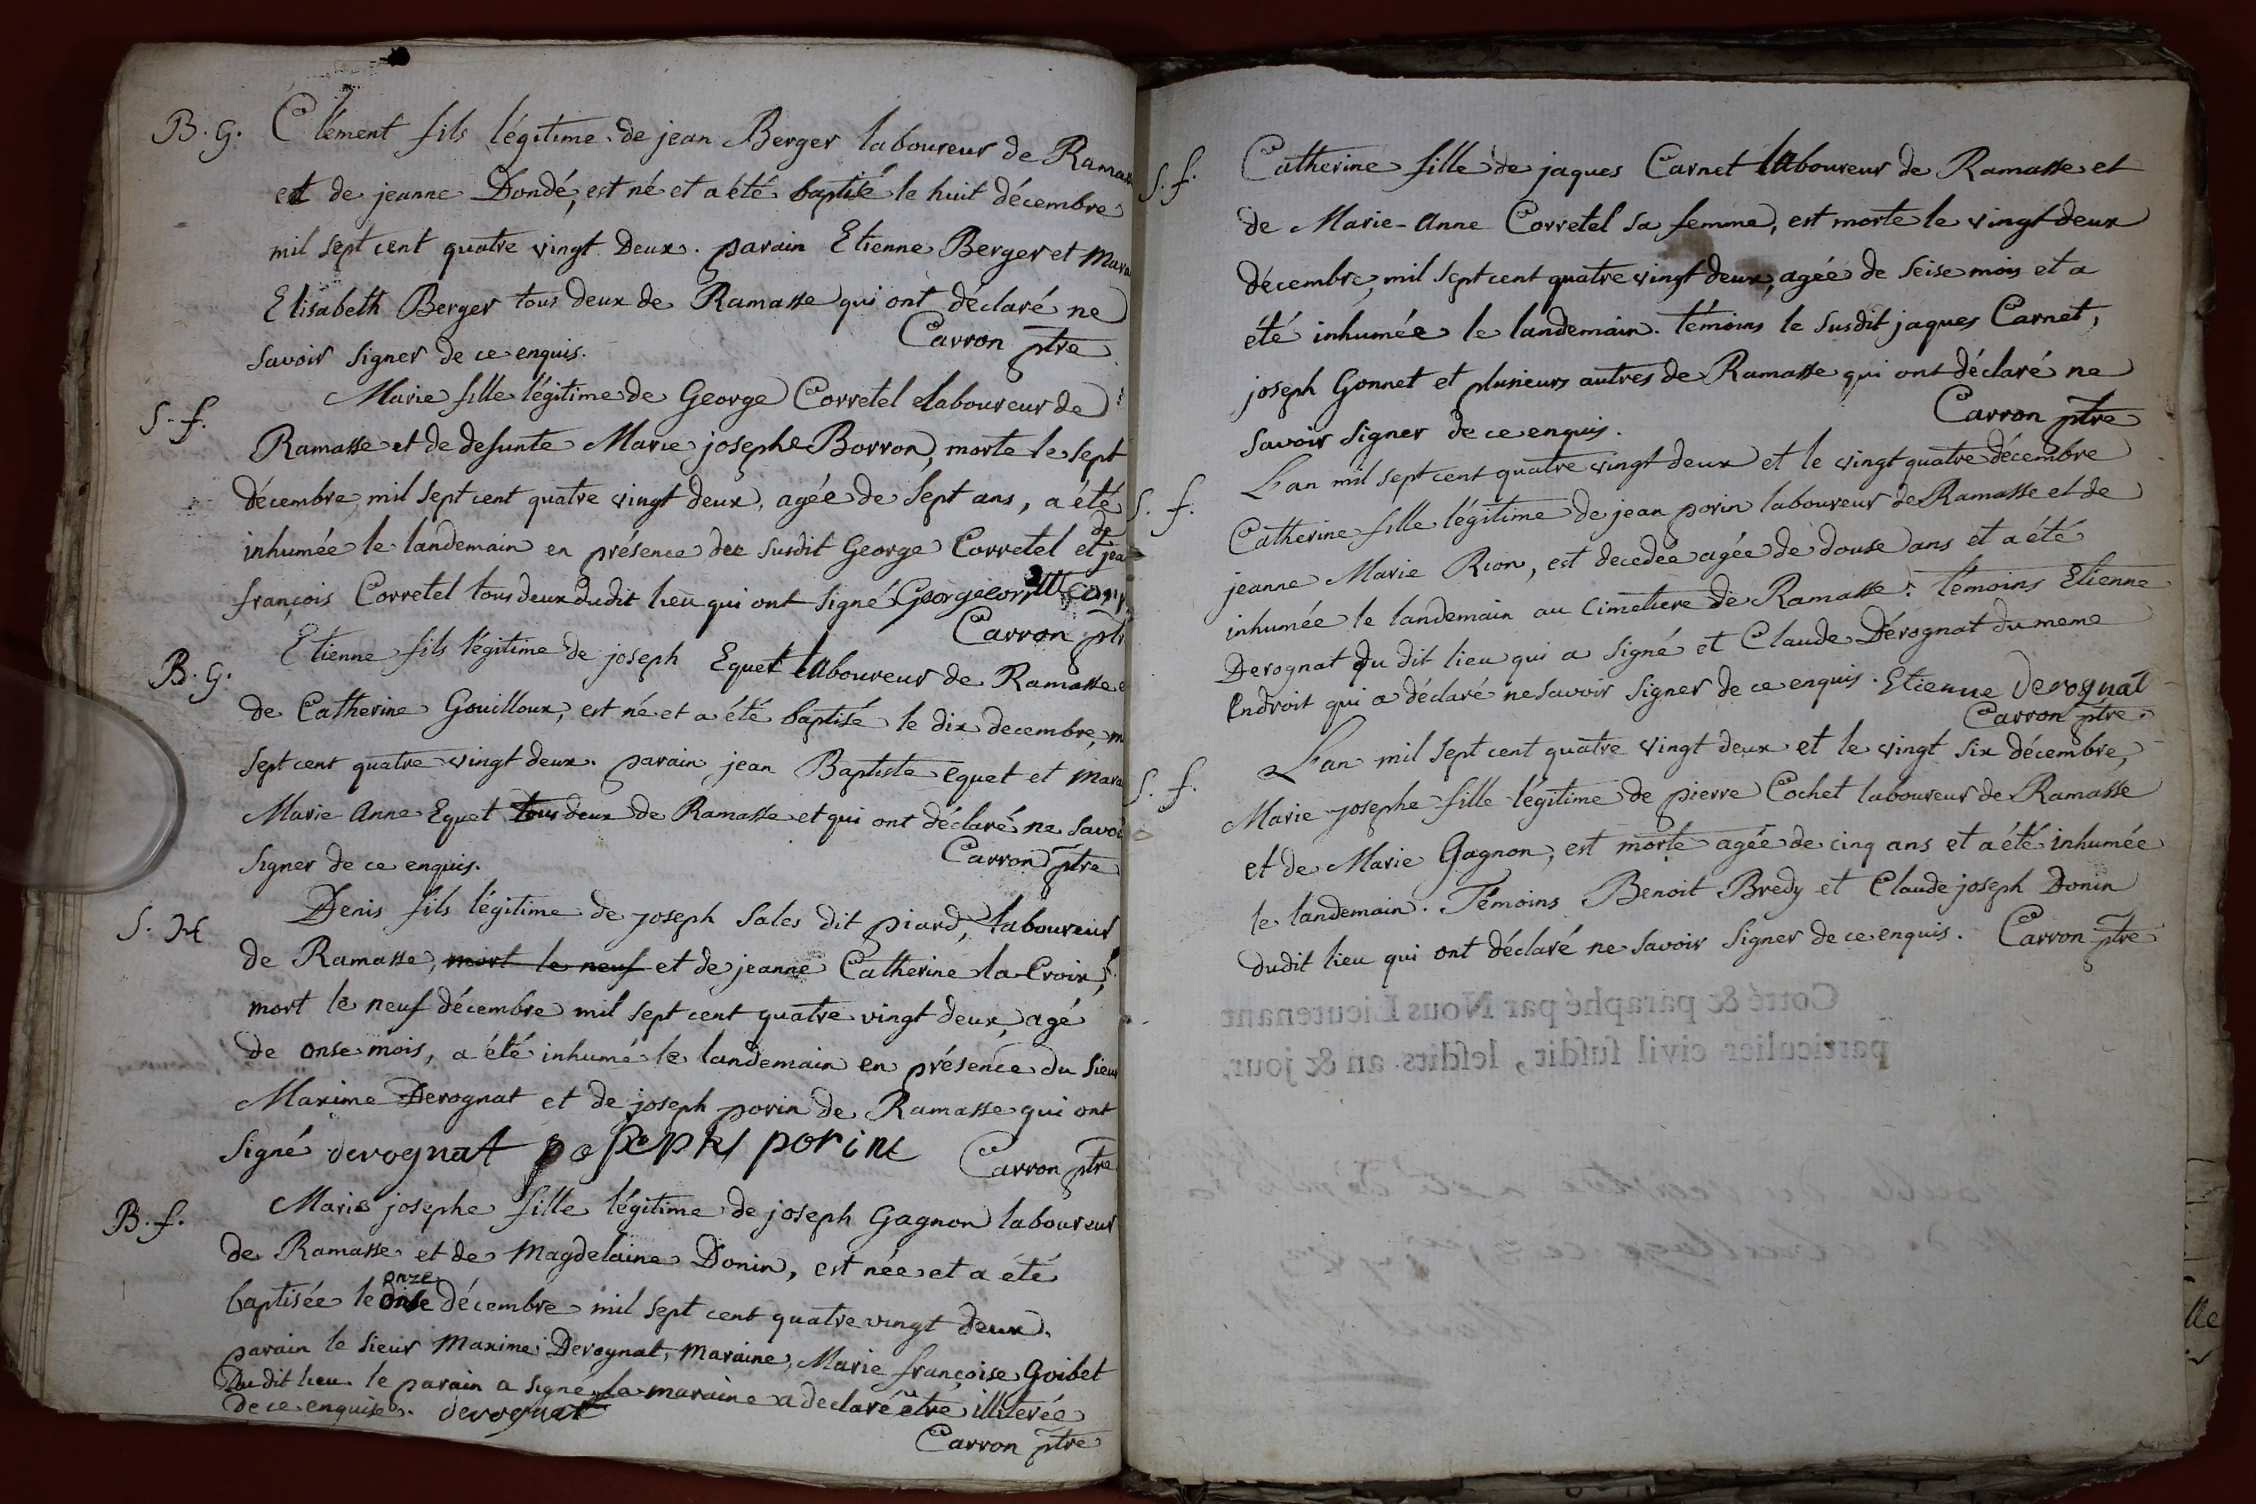 B. G. Clément fils légitime de jean Berger laboureur de Ramasse
et de jeanne Dondé, est né et a été baptisé le huit décembre
mil sept cent quatre vingt Deux. parain Etienne Berger et mara
Elisabeth Berger tous deux de Ramasse qui ont déclaré ne
savoir signer de ce enquis. Carron ptre
S. f. Marie fille légitime de George Corretel laboureur de
Ramasse et de defunte Marie josephe Borron, morte le sept
décembre mil sept cent quatre vingt deux, agée de sept ans, a été
inhumée le landemain en présence du susdit George Corretel et de jea
françois Corretel tous deux dudit lieu qui ont signé George
Carron ptr
B. G. Etienne fils légitime de joseph Equet laboureur de Ramasse e
de Catherine Gouilloux, est né et a été baptisé le dix decembre, m
sept cent quatre vingt deux. parain jean Baptiste equet et mara
Marie Anne Equet tous deux de Ramasse et qui ont déclaré ne savoi
signer de ce enquis. Carron ptre
S. Denis fils légitime de joseph Sales dit piard, laboureur
de Ramasse, mort le neuf et de jeanne Catherine la Croix,
mort le neuf décembre mil sept cent quatre vingt deux, agé
de onse mois, a été inhumé le landemain en présence du sieur
Maxime Derognat et de joseph porin de Ramasse qui ont
signé derognat porin Carron ptre
B. f. Marie josephe fille légitime de joseph Gagnon laboureur
de Ramasse et de Magdelaine Donin, est née et a été
onze
baptisée le onse décembre mil sept cent quatre vingt deux.
parain le sieur Maxime Derognat, maraine, Marie françoise Goibet
du dit lieu. le parain a signé la maraine a declaré etre illiterée
de ce enquise. derognat
Carron ptre
S. f. Catherine fille de jaques Carnet laboureur de Ramasse et
de Marie-Anne Corretel sa femme, est morte le vingt deux
décembre, mil sept cent quatre vingt deux, agée de seise mois et a
été inhumée le landemain. témoins le susdit jaques Carnet,
joseph Gonnet et plusieurs autres de Ramasse qui ont déclaré ne
savoir signer de ce enquis. Carron ptre
S. f. L'an mil sept cent quatre vingt deux et le vingt quatre décembre
Catherine fille légitime de jean porin laboureur de Ramasse et de
jeanne Marie Rion, est decedée agée de douse ans et a été
inhumée le landemain au Cimetiere de Ramasse. témoins Etienne
Derognat du dit lieu qui a signé et Claude Dérognat du meme
endroit qui a déclaré ne savoir signer de ce enquis. Etienne Derognat
Carron ptre.
S. f. L'an mil sept cent quatre vingt deux et le vingt six décembre,
Marie josephe fille légitime de pierre Cochet laboureur de Ramasse
et de Marie Gagnon, est morte agée de cinq ans et a été inhumée
le landemain. Témoins Benoit Bredy et Claude joseph Donin
dudit lieu qui ont déclaré ne savoir signer de ce enquis. Carron ptre
Cotté & paraphé par Nous Lieutenant
particulier civil susdit, lesdits an & jour.